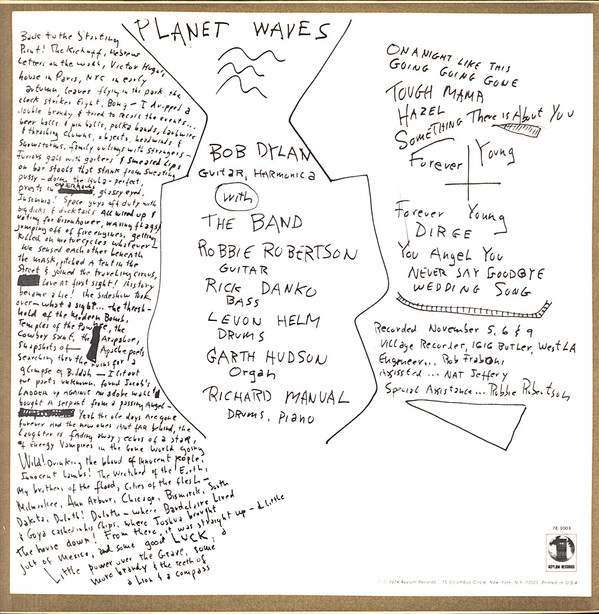 PLANET WAVES
Back to the Starting
Point! The Kickoff, Hebrew
Letters on the walls, Victor Hugo's
house in Paris, NYC in early
autumn, leaves flying in the park, the
clock strikes Eight, Bong - I dropped a
double brandy & tried to recall the events...
beer halls & pin balls, polka bands, barbwire
& thrashing clowns, objects, headwinds &
snowstorms, family outings with strangers -
Furious gals with garters & smeared Lips
on bar stools that stank from sweating
pussy - doing the Hula - perfect,
priests in overhauls, glassy eyed,
Insomnia! Space guys off duty with
big dicks & ducktails All wired up &
voting for Eisenhower, waving flags &
jumping off of fire engines, getting
killed on motorcycles whatever -
We sensed each other beneath
the mask, pitched a tent in the
Street & joined the traveling circus,
Love at first sight! History
became a Lie! the sideshow took
over - what a sight... the thresh-
hold of the Modern Bomb,
Temples of the Pawnee, the
Cowboy saint, the Arapahoe,
snapshots of Apache poets
searching thru the ruins for a
glimpse of Buddah - I lit out
for parts unknown, found Jacob's
Ladder up against an adobe wall &
bought a serpent from a passing Angel -
Yeah the ole days are gone
forever And the new ones aint far behind, the
Laughter is fading away, echos of a star,
of Energy Vampires in the Gone World going
Wild! Drinking the blood of innocent people,
Innocent Lambs! The Wretched of the Earth,
My brothers of the flood, Cities of the flesh -
Milwaukee, Ann Arbor, Chicago, Bismarck, South
Dakota, Duluth! Duluth - where Baudelaire Lived
& Goya cashed in his Chips, where Joshua brought
the house down! From there, it was straight up - a Little
jolt of Mexico, and some good LUCK, a
Little power over the Grave, some
more brandy & the teeth of
a Lion & a compass
BOB DYLAN
GUITAR, HARMONICA
with
THE BAND
ROBBIE ROBERTSON
GUITAR
RICK DANKO
BASS
LEVON HELM
DRUMS
GARTH HUDSON
Organ
RICHARD MANUAL
DRUMS, PIANO
ON A NIGHT LIKE THIS
GOING GOING GONE
TOUGH MAMA
HAZEL
SOMETHING There is About You
Forever Young
Forever Young
DIRGE
You Angel You
NEVER SAY GOODBYE
WEDDING SONG
Recorded November 5, 6 & 9
Village Recorder, 1616 BUTLER, West LA
Engineer... Rob Fraboni
Assisted... NAT Jeffery
Special Assistance... Robbie Robertson
7E-1003
ASYLUM RECORDS
© ℗ 1974 Asylum Records, 15 Columbus Circle, New York, N.Y. 10023. Printed in U.S.A.